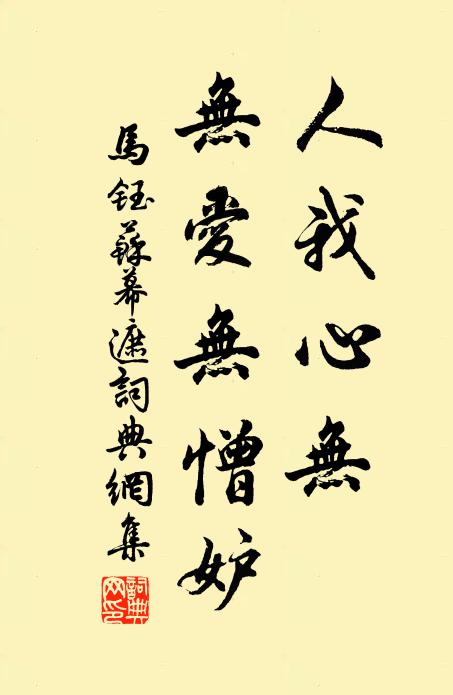 人我心無
無愛無憎妒
馬鈺蘇幕遮詞典網集
詞典
网印